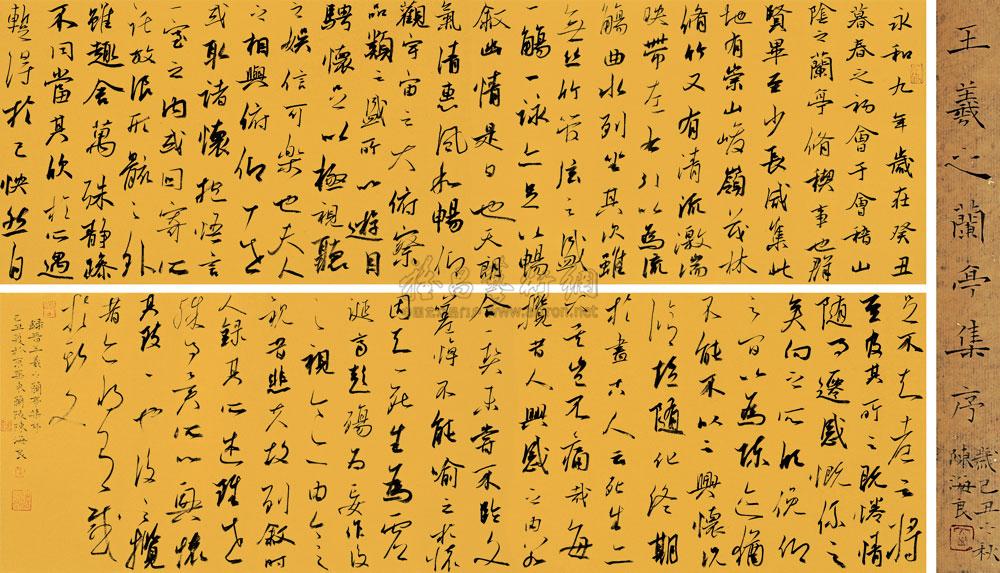 王羲之蘭亭集序
歲己丑之秋
陳海良
永和九年歲在癸丑
暮春之初會于會稽山
陰之蘭亭脩稧事也群
賢畢至少長咸集此
地有崇山峻嶺茂林
脩竹又有清流激湍
映帶左右引以為流
觴曲水列坐其次雖
無絲竹管弦之盛
一觴一詠亦足以暢
敘幽情是日也天朗
氣清惠風和暢仰
觀宇宙之大俯察
品類之盛所以遊目
騁懷足以極視聽
之娛信可樂也夫人
之相與俯仰一世
或取諸懷抱悟言
一室之內或因寄所
託放浪形骸之外
雖趣舍萬殊靜躁
不同當其欣於所遇
暫得於己快然自
足不知老之將
至及其所之既惓情
隨事遷感慨係之
矣向之所欣俛仰
之間以為陳迹猶
不能不以之興懷況
脩短隨化終期
於盡古人云死生亦
大矣豈不痛哉每
攬昔人興感之由若
合一契未嘗不臨文
嗟悼不能喻之於懷
固知一死生為虛
誕齊彭殤為妄作後
之視今亦由今之
視昔悲夫故列敘時
人錄其所述雖世
殊事異所以興懷
其致一也後之攬
者亦將有感
於斯文
錄晉王羲之蘭亭集序
己丑歲於京華東蘭陵陳海良